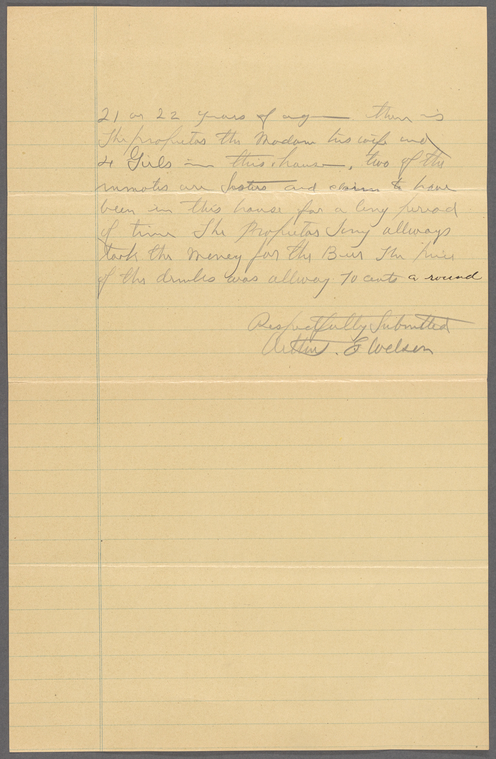 21 or 22 years of age there is
The propietor the Madam his wife and
4 Girls in this house, two of the
inmates are Sisters and claim to have
been in this house for a long period
of time The Propietor Tony allways
took the Money for the Beer The price
of the drinks was allway 70 cents a round
Respectfully Submitted
Arthur. E Wilson